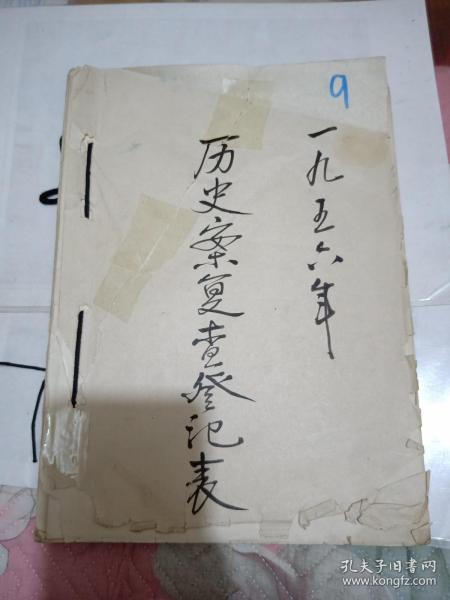 9
一九五六年
历史案复查登记表
孔夫子旧书网
www.kongfz.com